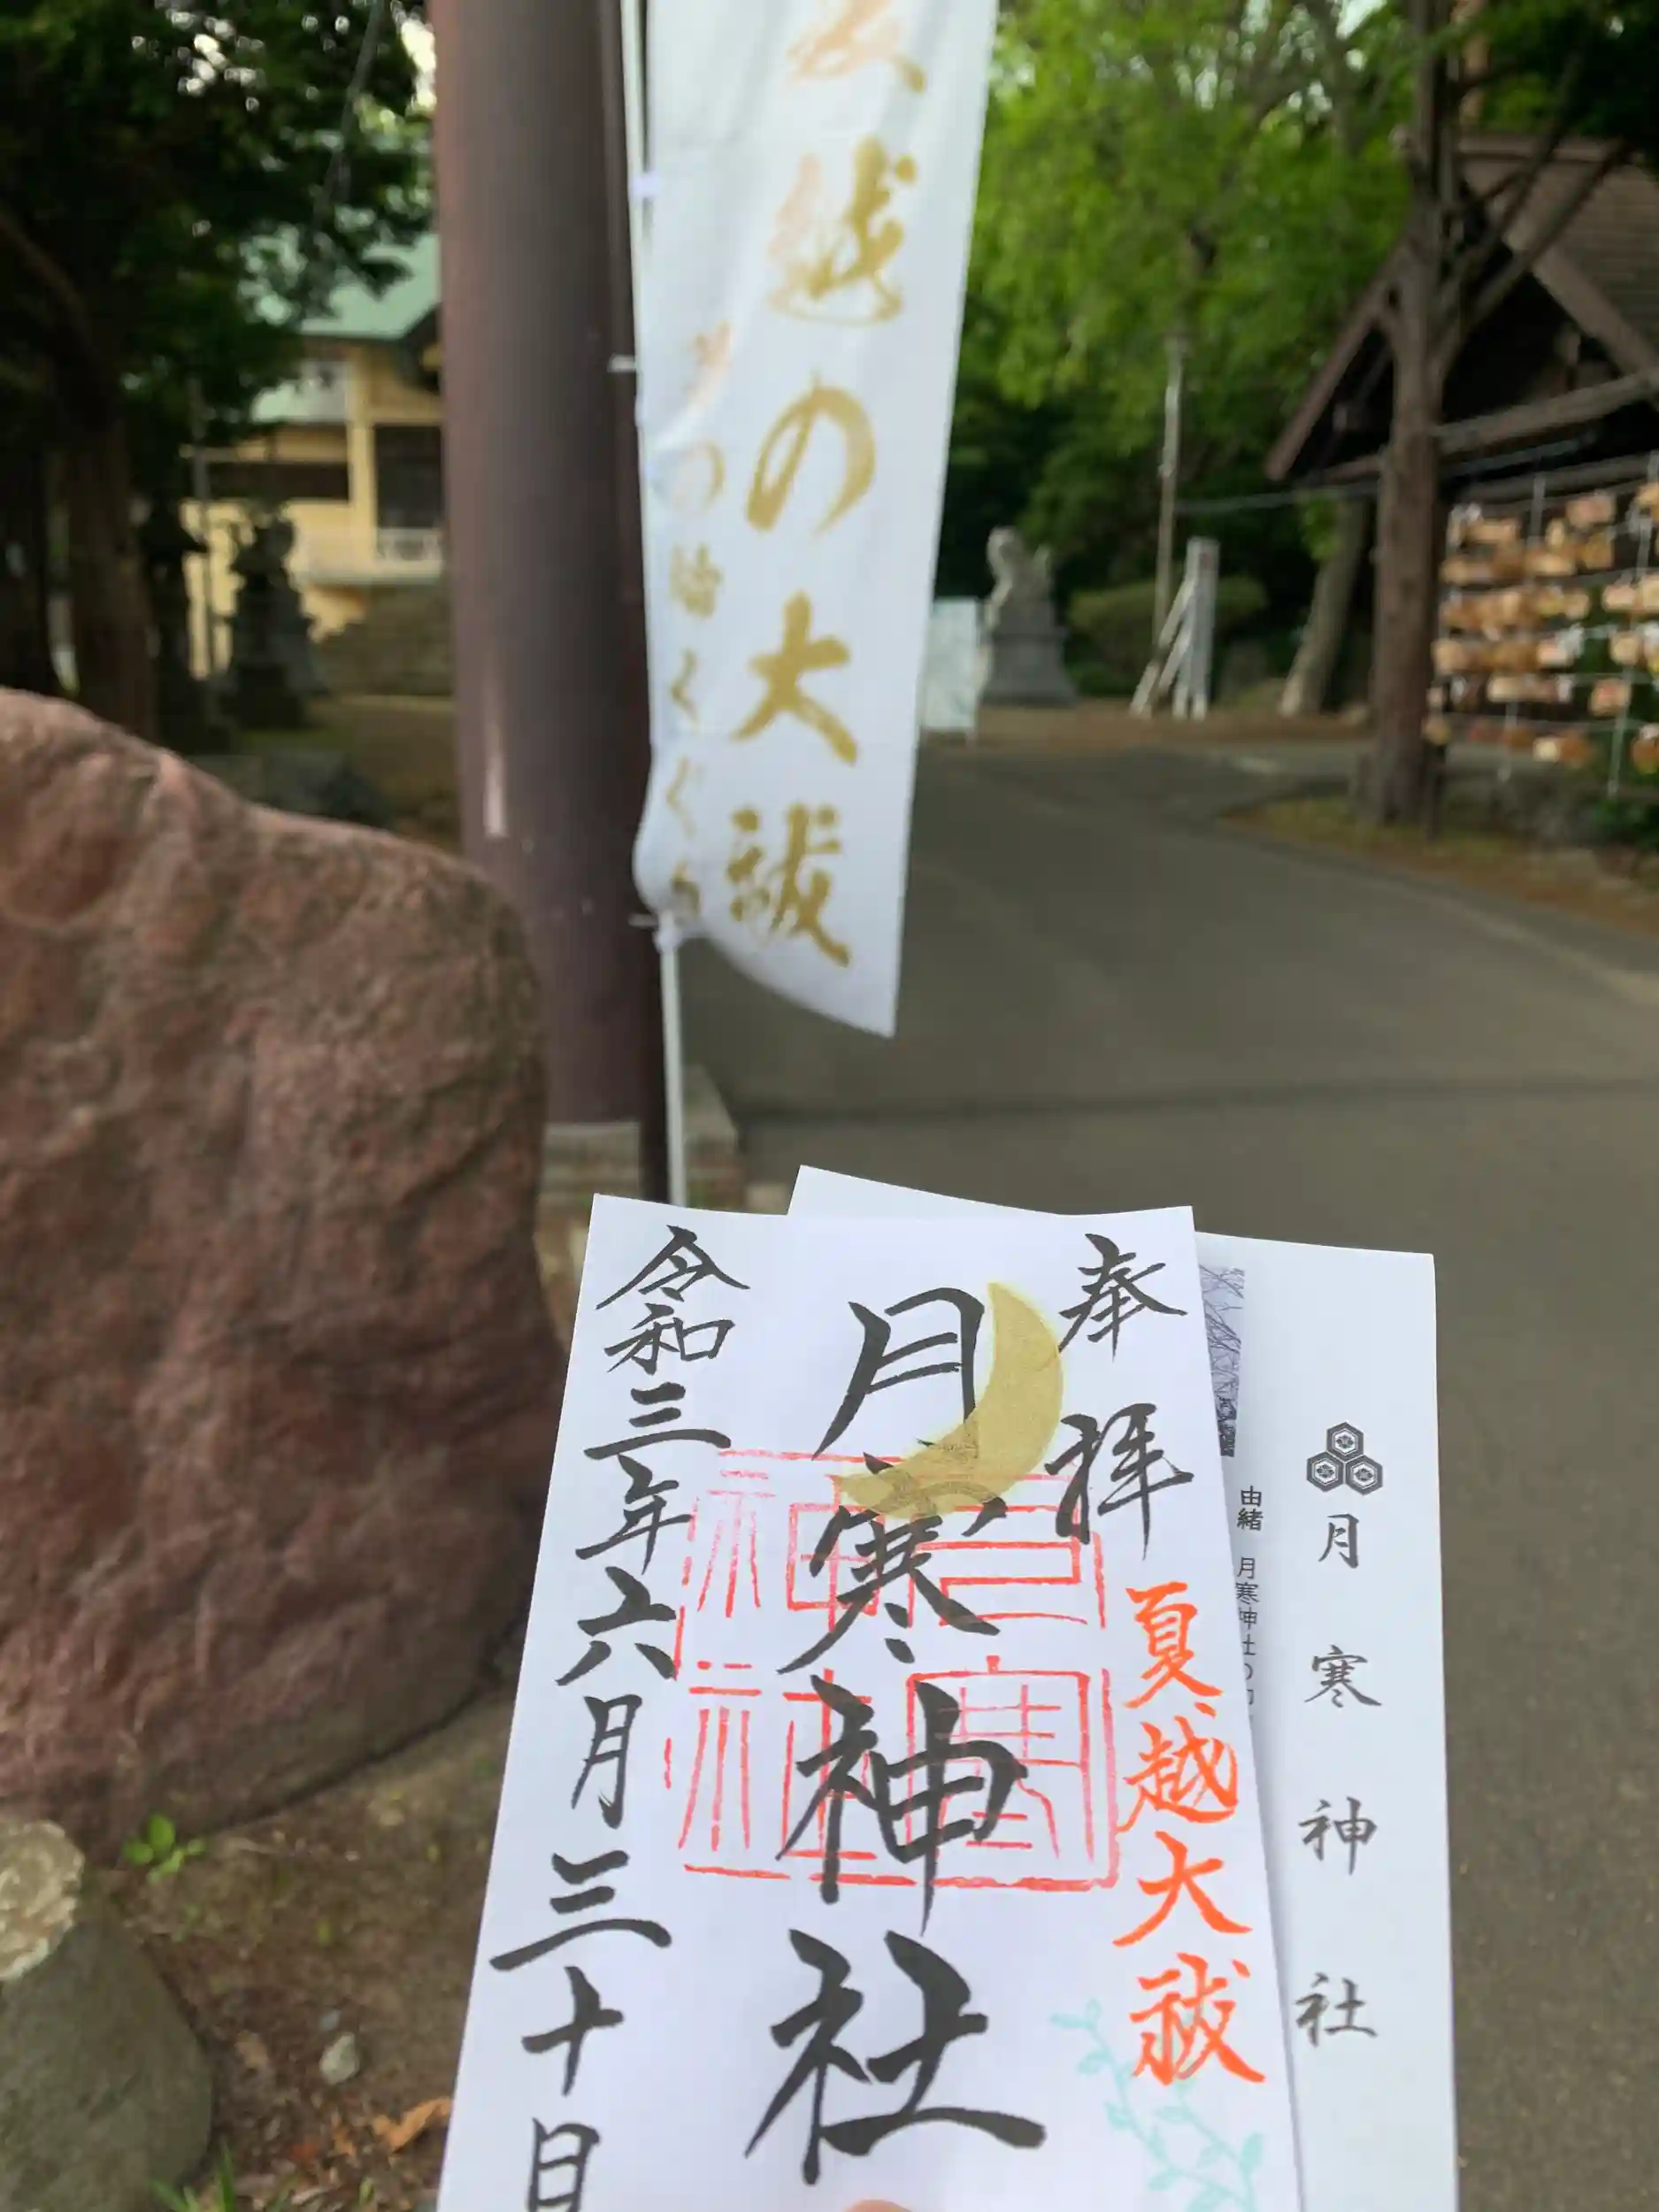 越の大祓
の輪くぐり
奉拝
夏越大祓
月寒神社
令和三年六月三十日
月寒神社
由緒 月寒神社の